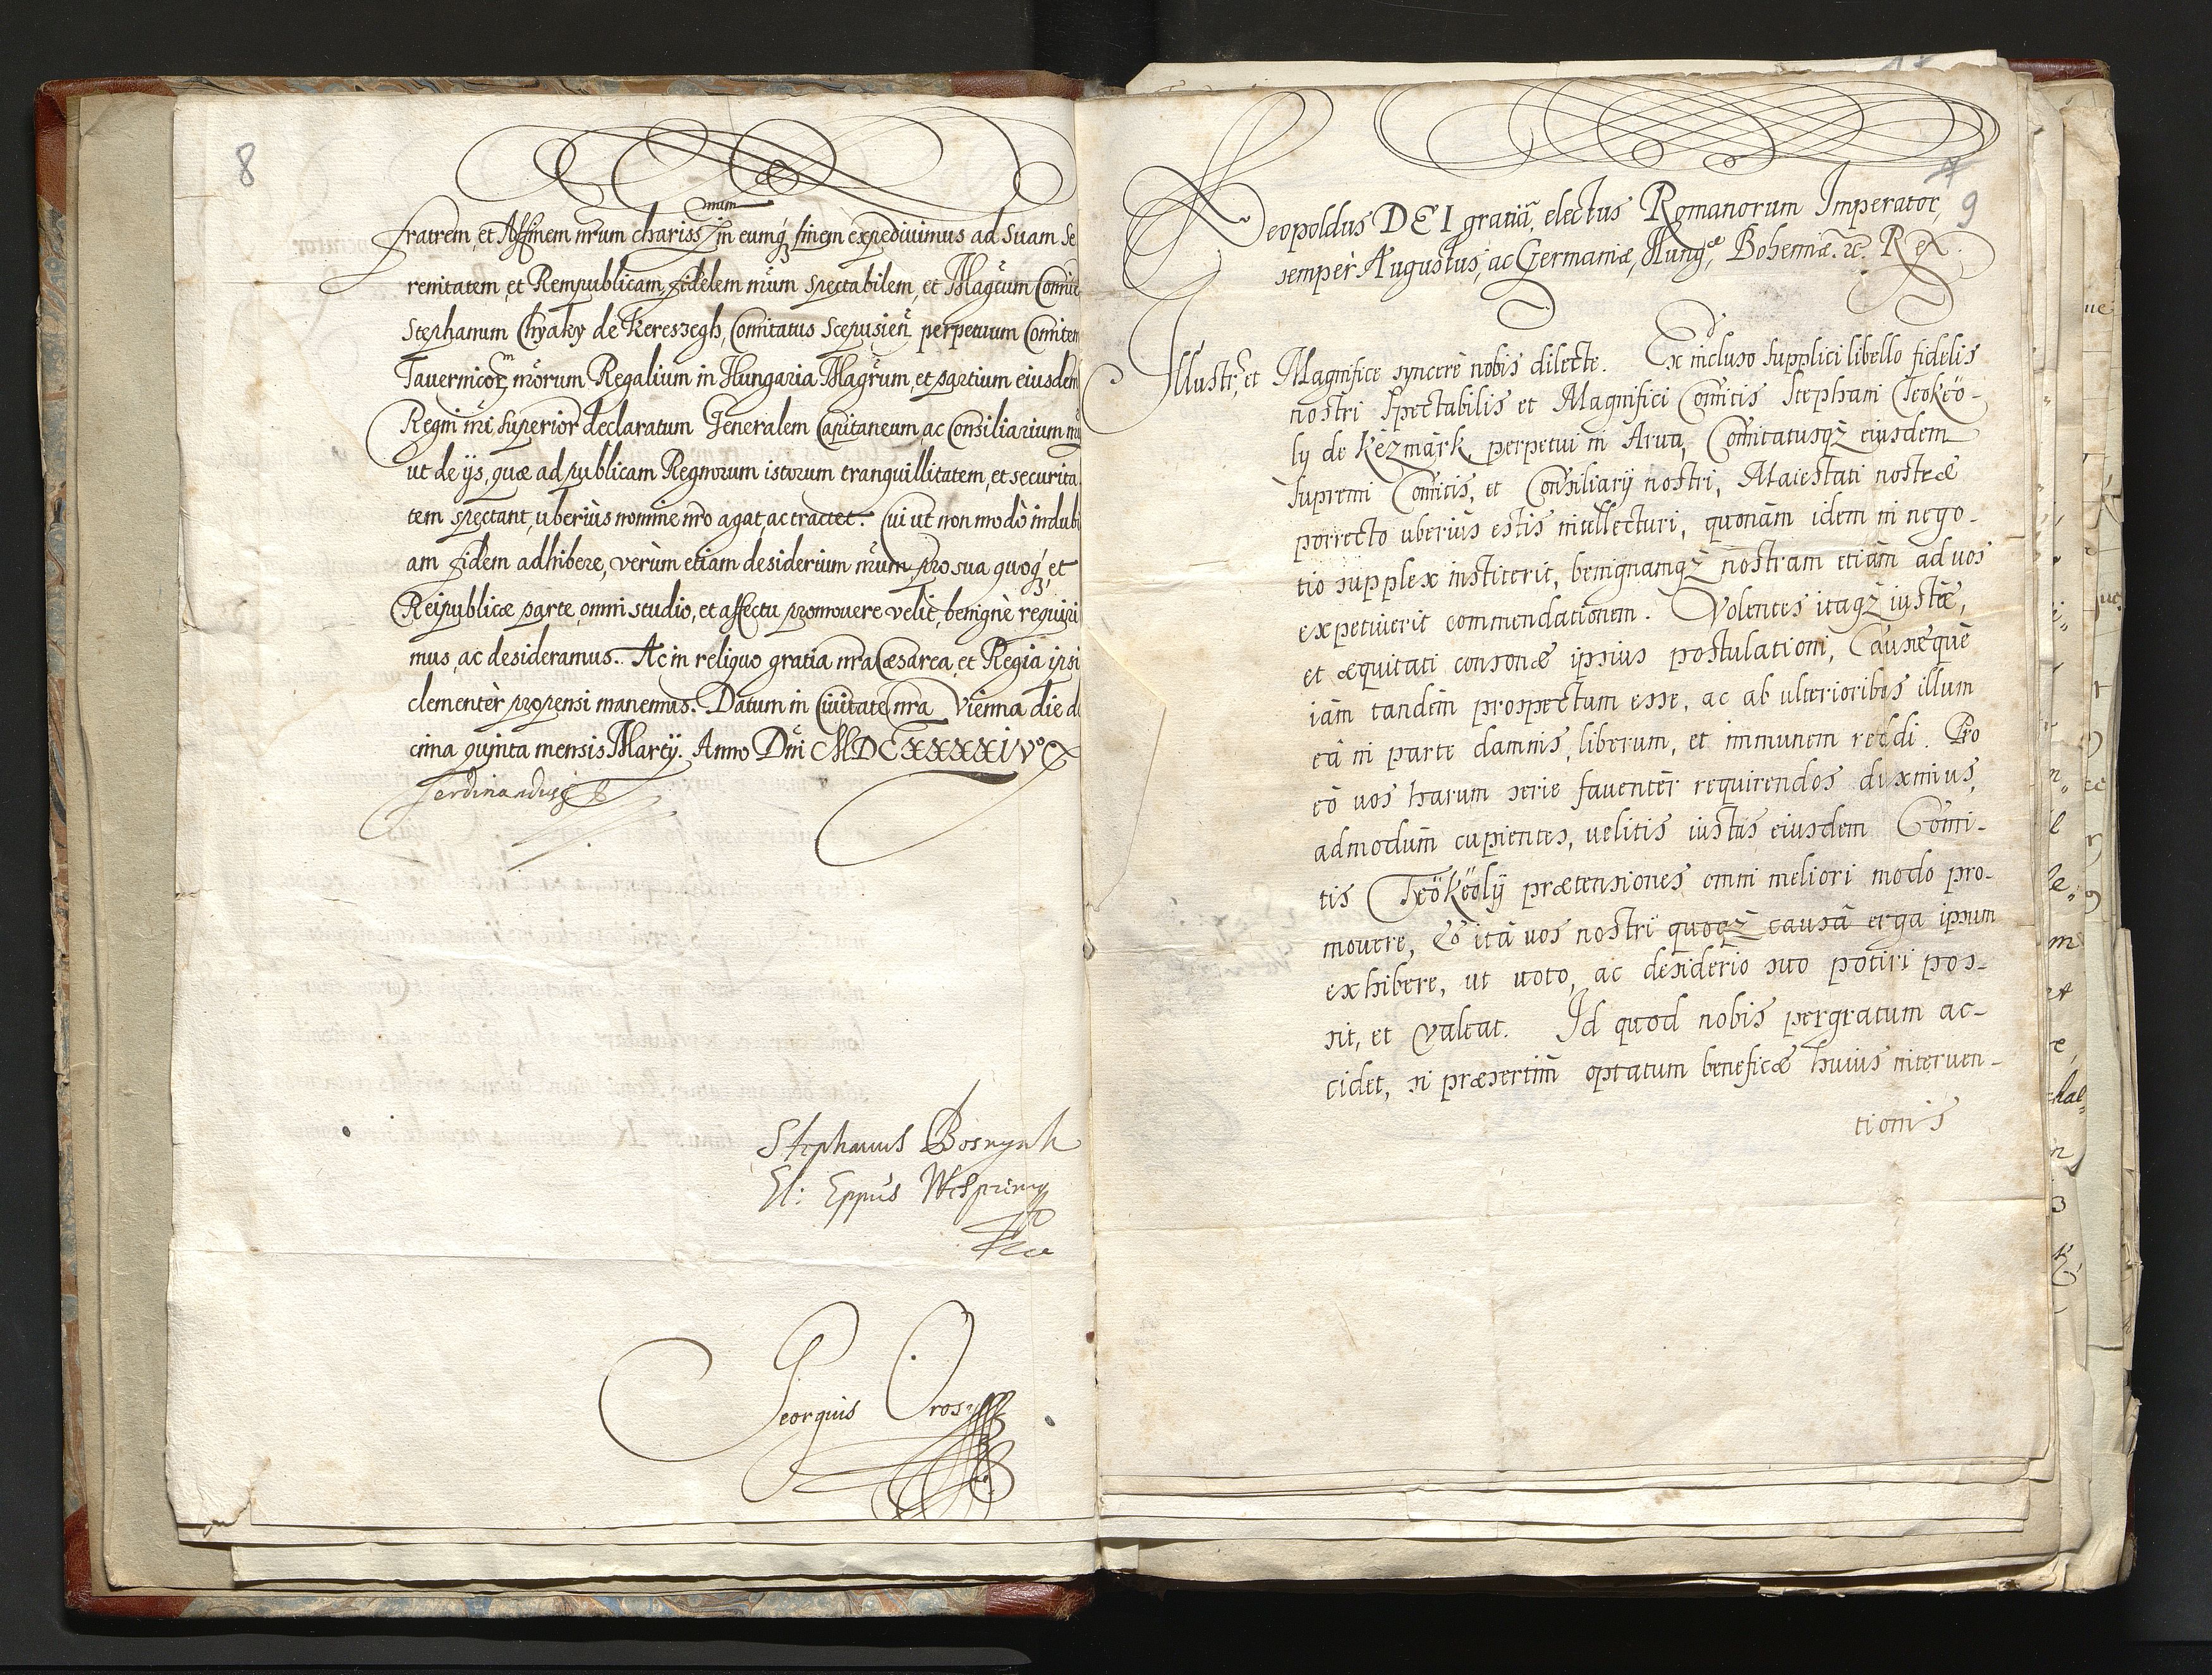 8
mum
fratrem, et Affinem nrum chariss in eumq finem expediuimus ad Suam Se
renitatem, et Rempublicam fidelem nrum spectabilem, et Magcum Comite
Stephanum Chyaky de Kereszegh, Comitatus Scepusien perpetuum Comitem
Tauernicor nrorum Regalium in Hungaria Magrum, et partium eiusdem
Regni nri superior declaratum Generalem Capitaneum, ac Consiliarium
ut de ijs, quæ ad publicam Regnorum istorum tranquillitatem, et securita
tem spectant, uberiùs nomine nro agat, ac tractet. Cui ut non modò indubi
am fidem adhibere, verùm etiam desiderium nrum, pro sua quoq, et
Reipublicæ parte, omni studio, et affectu promouere velit, benignè requiri
mus, ac desideramus. Ac in reliquo gratia nra Cæsarea, et Regia ipsi
clementèr propensi manemus. Datum in Ciuitate nra Vienna die de
cima quinta mensis Martij. Anno Dni MDCXXXXIVo
Ferdinandus
Stephanus Bosnyak
El: Eppus Wesprim
Georgius Orosy
7
9
Leopoldus DEI gratiâ, electus Romanorum Imperator,
semper Augustus, ac Germaniæ, Hungæ, Bohemiæ. &c. Rex.
Illustr, et Magnifice syncerè nobis dilecte. Ex incluso supplici libello fidelis
nostri Spectabilis et Magnifici Comitis Stephani Teokeo-
ly de Késmárk, perpetui in Arua, Comitatusq eiusdem
Supremi Comitis, et Consiliarij nostri, Maiestati nostræ
porrecto uberiùs estis intellecturi, quonam idem in nego-
tio supplex institerit, benignamq nostram etiàm ad uos
expetiuerit commendationem. Volentes itaq iustæ,
et æquitati consonæ ipsius postulationi, Causæque
iàm tandèm prospectum esse, ac ab ulterioribus illum
eâ in parte damnis, liberum, et immunem reddi. Pro
eò uos harum serie fauentèr requirendos duximus,
admodum cupientes, uelitis iustas eiusdem Comi-
tis Teököoly prætensiones omni meliori modo pro-
mouere, Eo ità uos nostri quoq causâ erga ipsum
exhibere, ut uoto, ac desiderio suo potiri pos-
sit, et valeat. Id quod nobis pergratum ac-
cidet, si præsertim optatum beneficæ huius interuen-
tionis